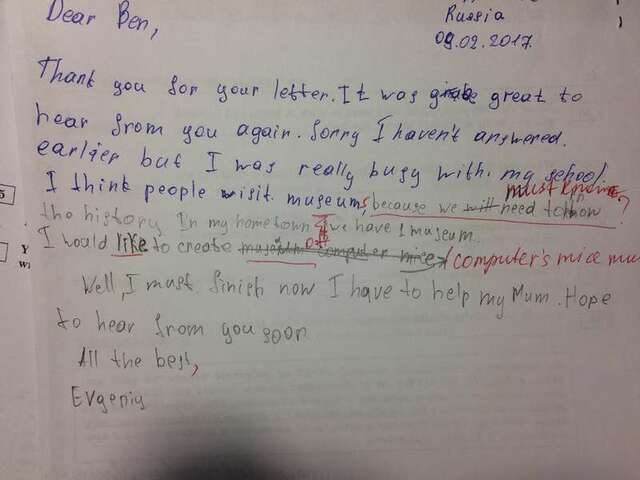 Russia
09.02.2017
Dear Ben,
Thank you for your letter. It was great to
hear from you again. Sorry I havent answered
earlier but I was really busy with my school
I think people wisit museums because we need to know
must know
the history. In my hometown we have 1 museum.
I would like to create of computer mice (computer's mice mu
Well, I must finish now I have to help my Mum. Hope
to hear from you soon
All the best,
Evgeniy